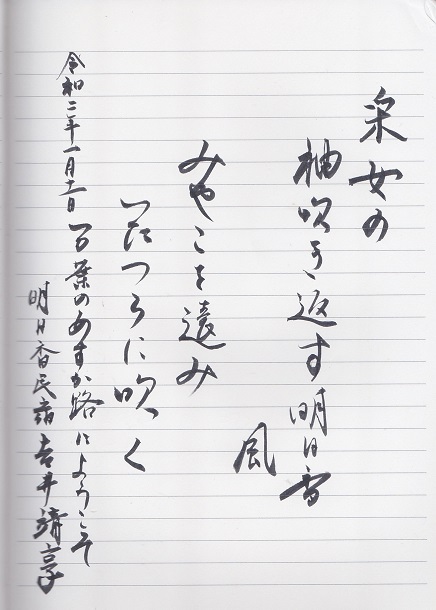 采女の
袖吹き返す明日香
風
みやこを遠み
いたづらに吹く
令和二年一月十一日 万葉のあすか路にようこそ
明日香民宿 吉井靖享